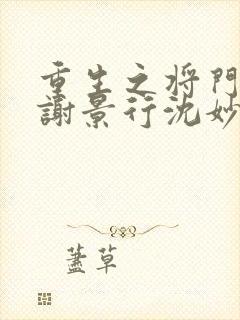 重生之将门
謝景行沈妙
蓋草